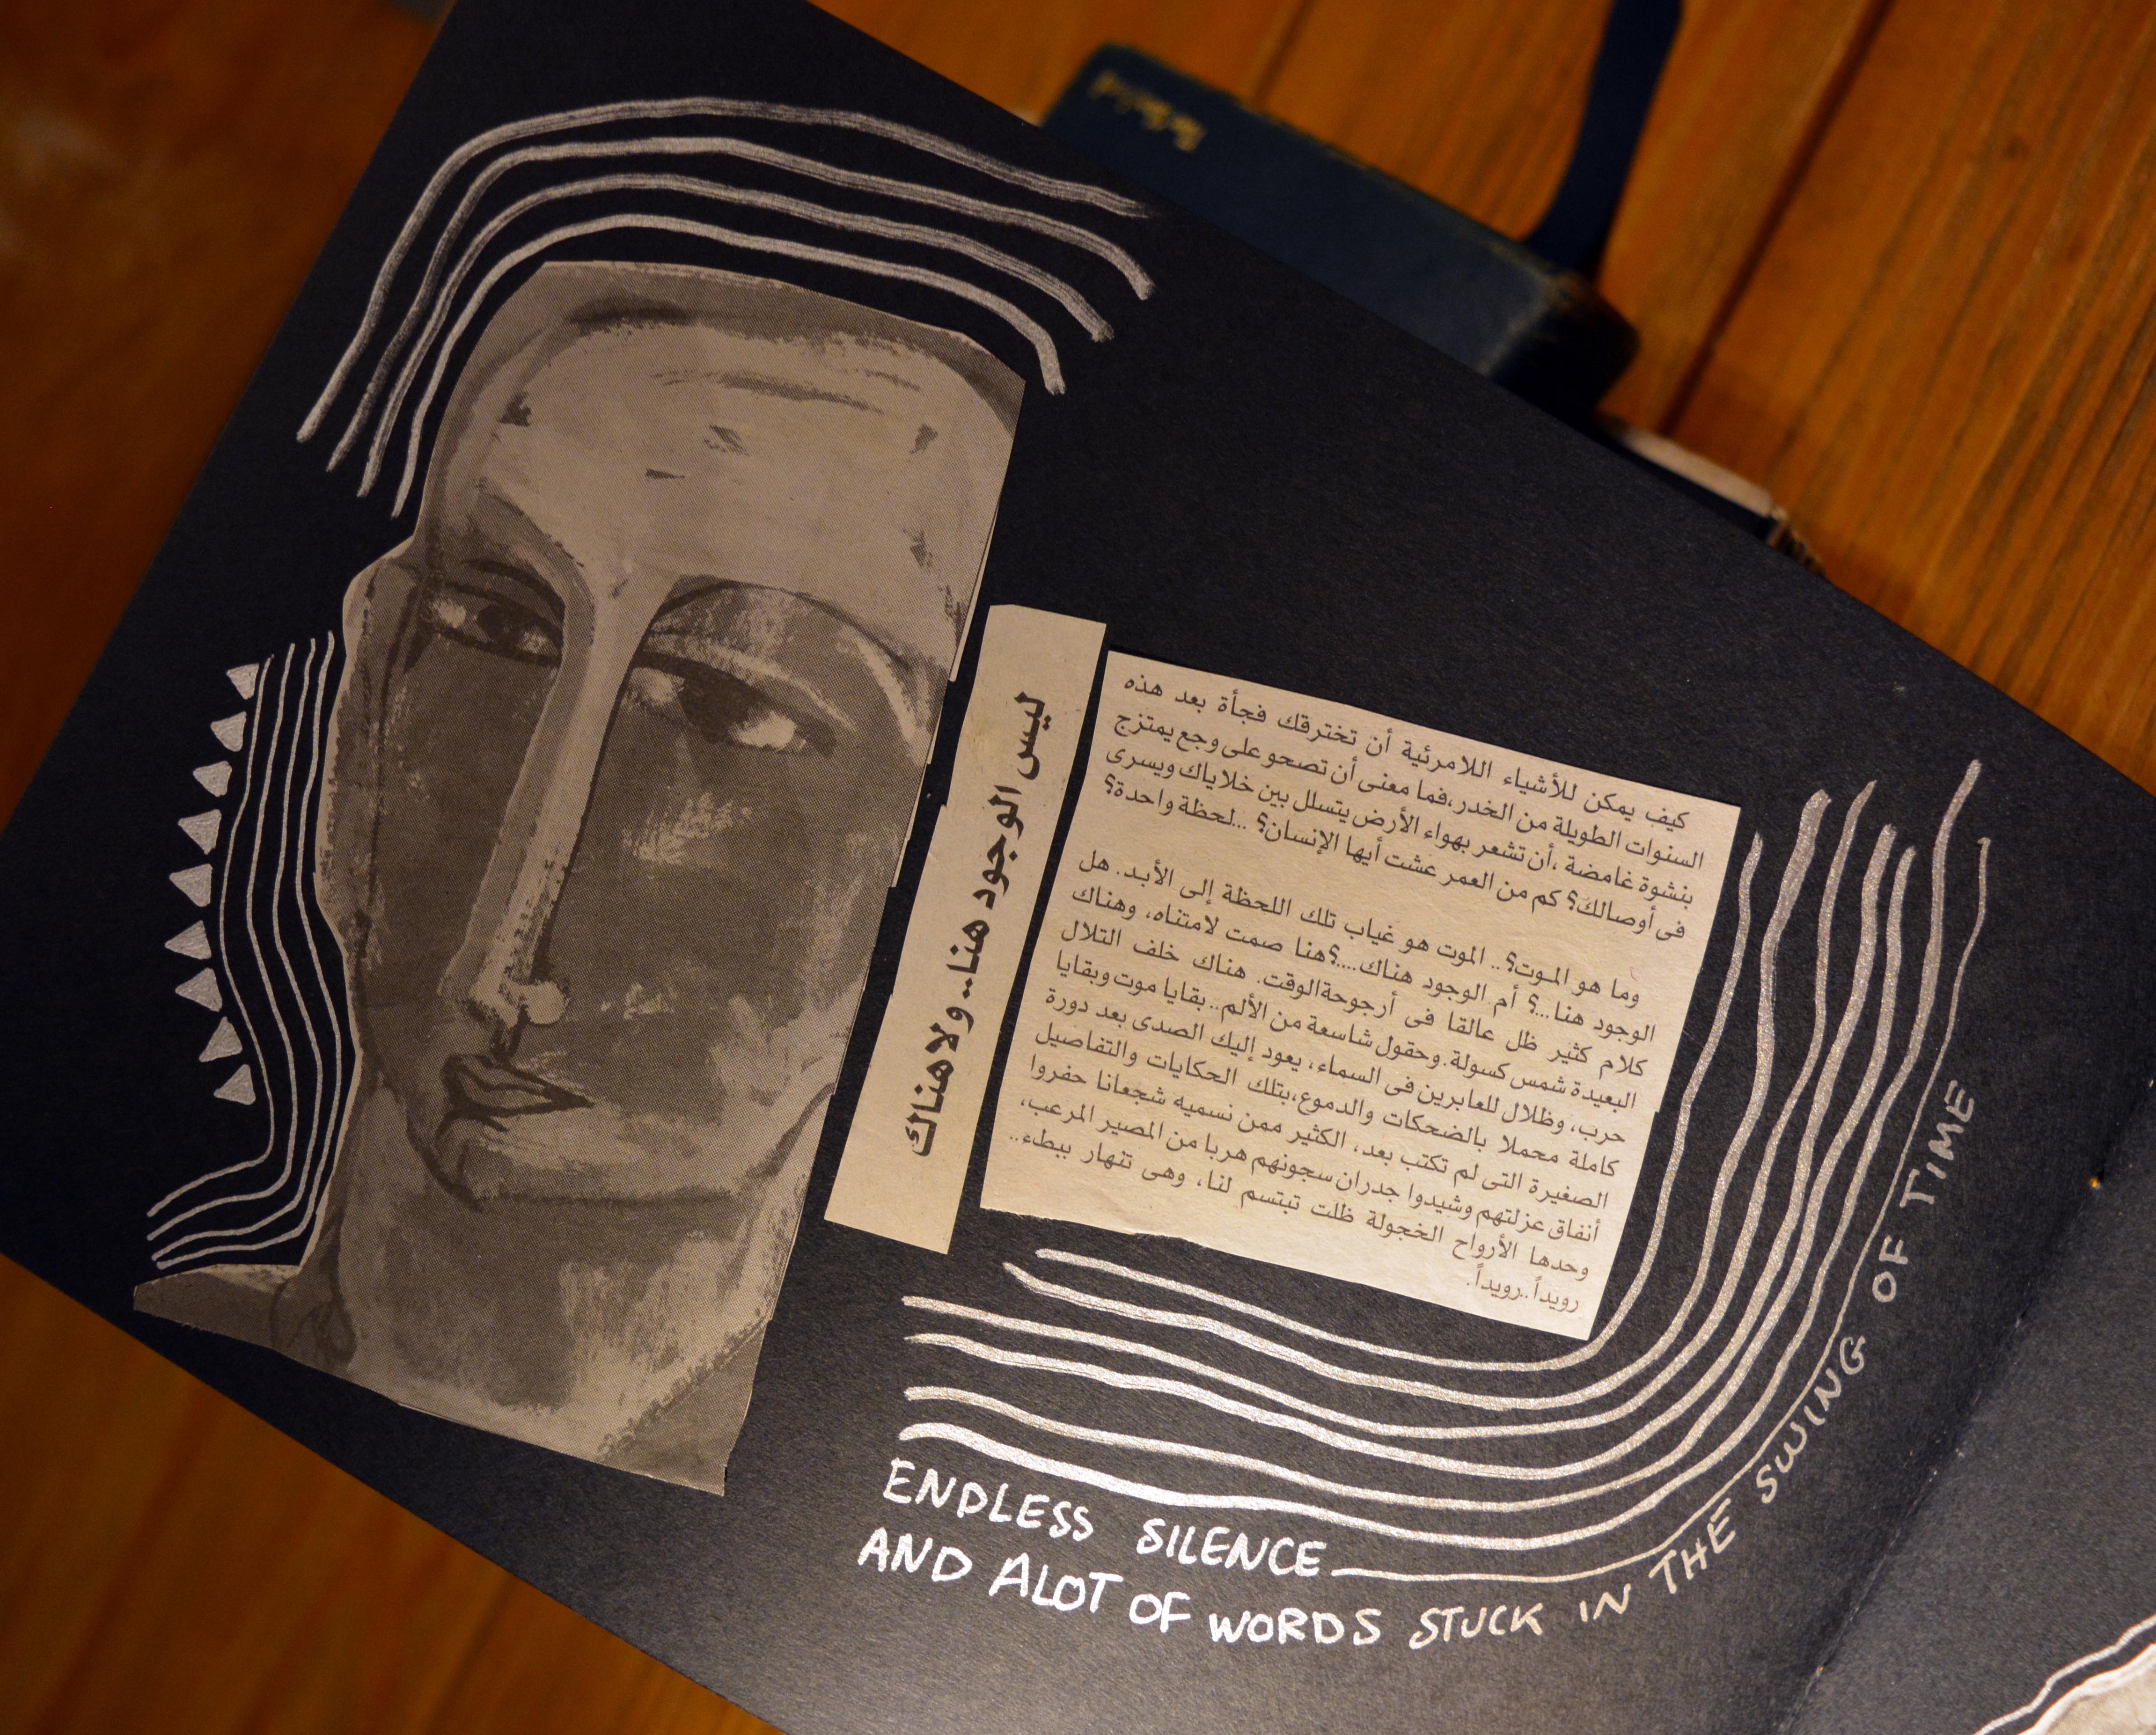 ليس الوجود هنا.. ولا هناك
كيف يمكن للأشياء اللامرئية أن تخترقك فجأة بعد هذه
السنوات الطويلة من الخدر، فما معنى أن تصحو على وجع يمتزج
بنشوة غامضة، أن تشعر بهواء الأرض يتسلل بين خلاياك ويسرى
فى أوصالك؟ كم من العمر عشت أيها الإنسان؟ ...لحظة واحدة؟
وما هو الموت؟.. الموت هو غياب تلك اللحظة إلى الأبد. هل
الوجود هنا...؟ أم الوجود هناك....؟هنا صمت لامتناه، وهناك
كلام كثير ظل عالقا فى أرجوحةالوقت. هناك خلف التلال
البعيدة شمس كسولة. وحقول شاسعة من الألم.. بقايا موت وبقايا
حرب، وظلال للعابرين فى السماء، يعود إليك الصدى بعد دورة
كاملة محملا بالضحكات والدموع،بتلك الحكايات والتفاصيل
الصغيرة التى لم تكتب بعد، الكثير ممن نسميه شجعانا حفروا
أنفاق عزلتهم وشيدوا جدران سجونهم هربا من المصير المرعب،
وحدها الأرواح الخجولة ظلت تبتسم لنا، وهى تنهار ببطء..
رويداً..رويداً.
ENDLESS SILENCE
AND ALOT OF WORDS STUCK IN THE SWING OF TIME